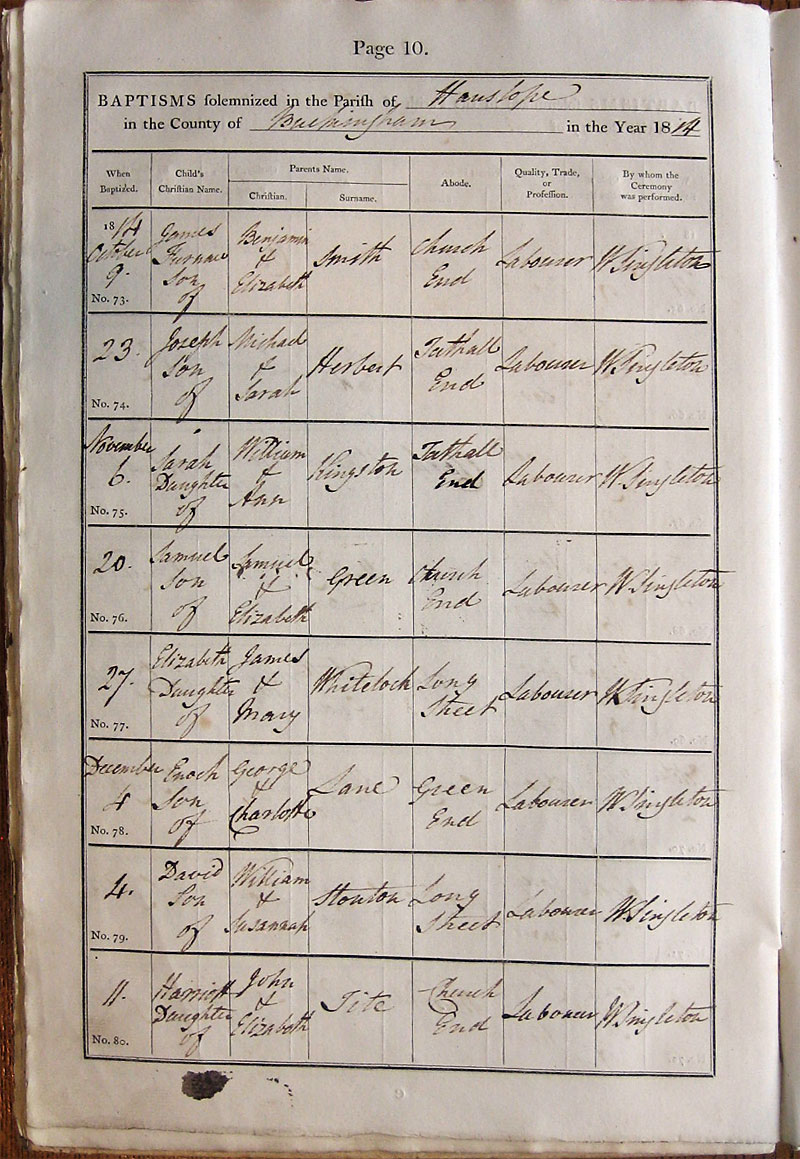 Page 10.
BAPTISMS ſolemnized in the Pariſh of Hanslope
in the County of Buckingham in the Year 1814
When Baptized.
Child's Chriſtian Name.
Parents Name.
Chriſtian.
Surname.
Abode.
Quality, Trade, or Profeſſion.
By whom the Ceremony was performed.
1814
October
9.
No. 73.
James
Furnace
Son
of
Benjamin
&
Elizabeth
Smith
Church
End
Labourer
W Singleton
23.
No. 74.
Joseph
Son
of
Michael
&
Sarah
Herbert
Tathall
End
Labourer
W Singleton
November
6.
No. 75.
Sarah
Daughter
of
William
&
Ann
Kingston
Tathall
End
Labourer
W Singleton
20.
No. 76.
Samuel
Son
of
Samuel
&
Elizabeth
Green
Church
End
Labourer
W Singleton
27.
No. 77.
Elizabeth
Daughter
of
James
&
Mary
Whitelock
Long
Street
Labourer
W Singleton
December
4
No. 78.
Enoch
Son
of
George
&
Charlotte
Lane
Green
End
Labourer
W Singleton
4.
No. 79.
David
Son
of
William
&
Susannah
Stonton
Long
Street
Labourer
W Singleton
11.
No. 80.
Harriott
Daughter
of
John
&
Elizabeth
Tite
Church
End
Labourer
W Singleton